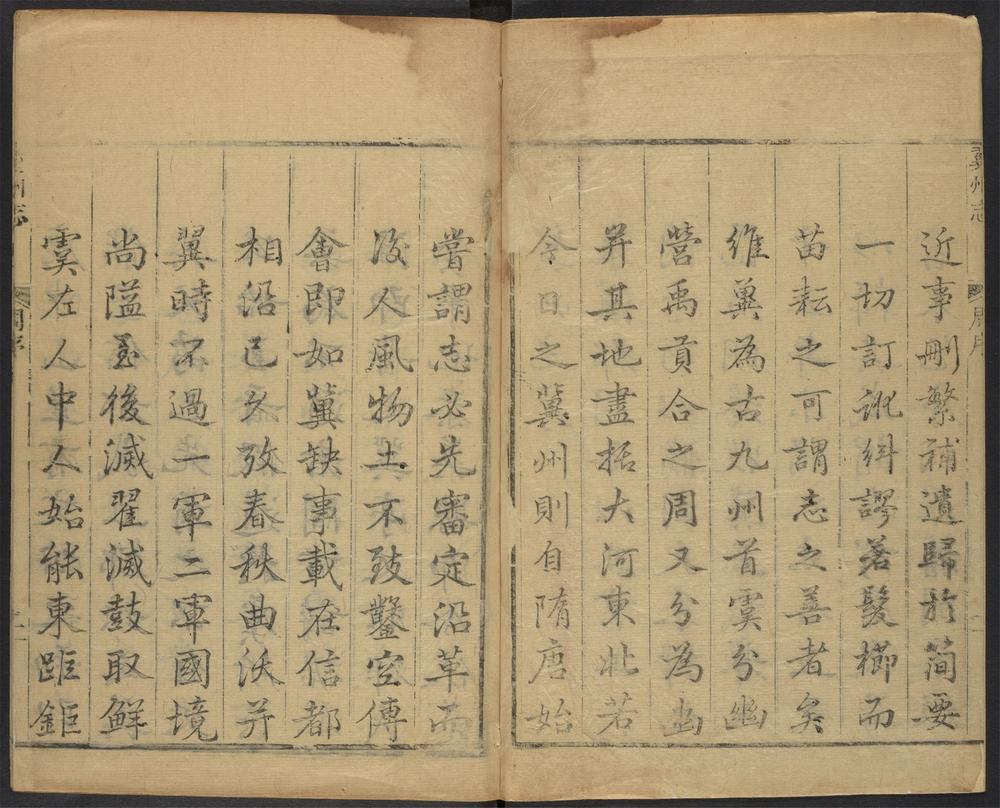 冀州志
近事刪繁補遺歸於簡要
一切訂訛糾謬若髮櫛而
苗耘之可謂志之善者矣
維冀為古九州首虞分幽
營禹貢合之周又分為幽
并其地盡括大河東北若
今日之冀州則自隋唐始
嘗謂志必先審定沿革而
後人風物土不致鑿空傳
會即如冀缺事載在信都
相沿已久攷春秋曲沃并
翼時不過一軍二軍國境
尚隘至後滅翟滅鼓取鮮
虞左人中人始能東距鉅
州志